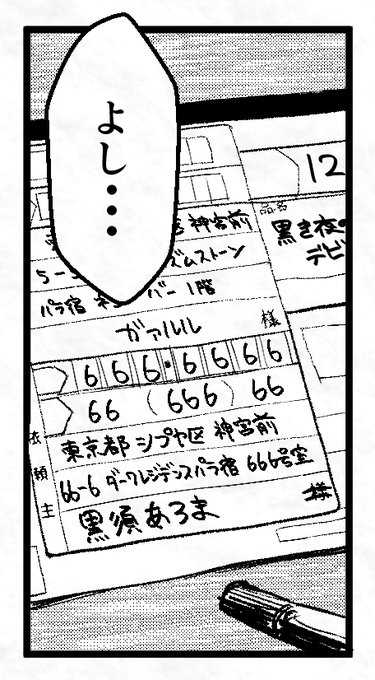 よし・・・
12
品名
黒き夜の
デビ
神宮前
5-
ズムストーン
パラ宿
バー 1階
ガァルル
様
666-6666
66 (666) 66
依頼主
東京都 シブヤ区 神宮前
66-6 ダークレジデンスパラ宿 666号室
黒須あろま
様